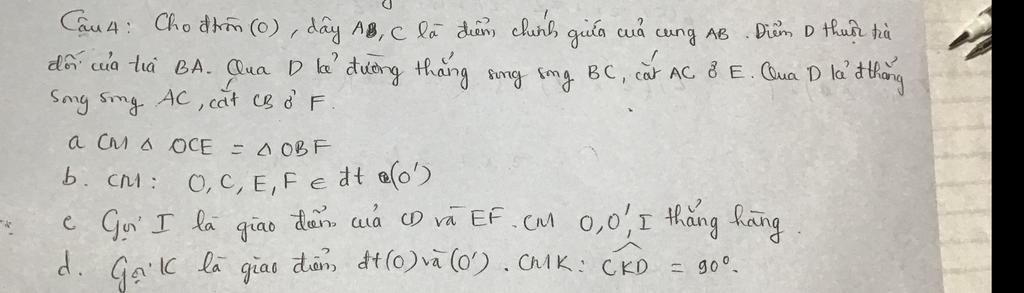 Câu 4: Cho đtròn (O), dây AB, C là điểm chính giữa của cung AB. Điểm D thuộc tia
đối của tia BA. Qua D kẻ đường thẳng song song BC, cắt AC ở E. Qua D kẻ đthẳng
song song AC, cắt CB ở F.
a CM Δ OCE = Δ OBF
b. CM: O, C, E, F ∈ đt (O')
c Gọi I là giao điểm của CD và EF. CM O, O', I thẳng hàng.
d. Gọi K là giao điểm đt (O) và (O'). CMR: CKD = 90°.